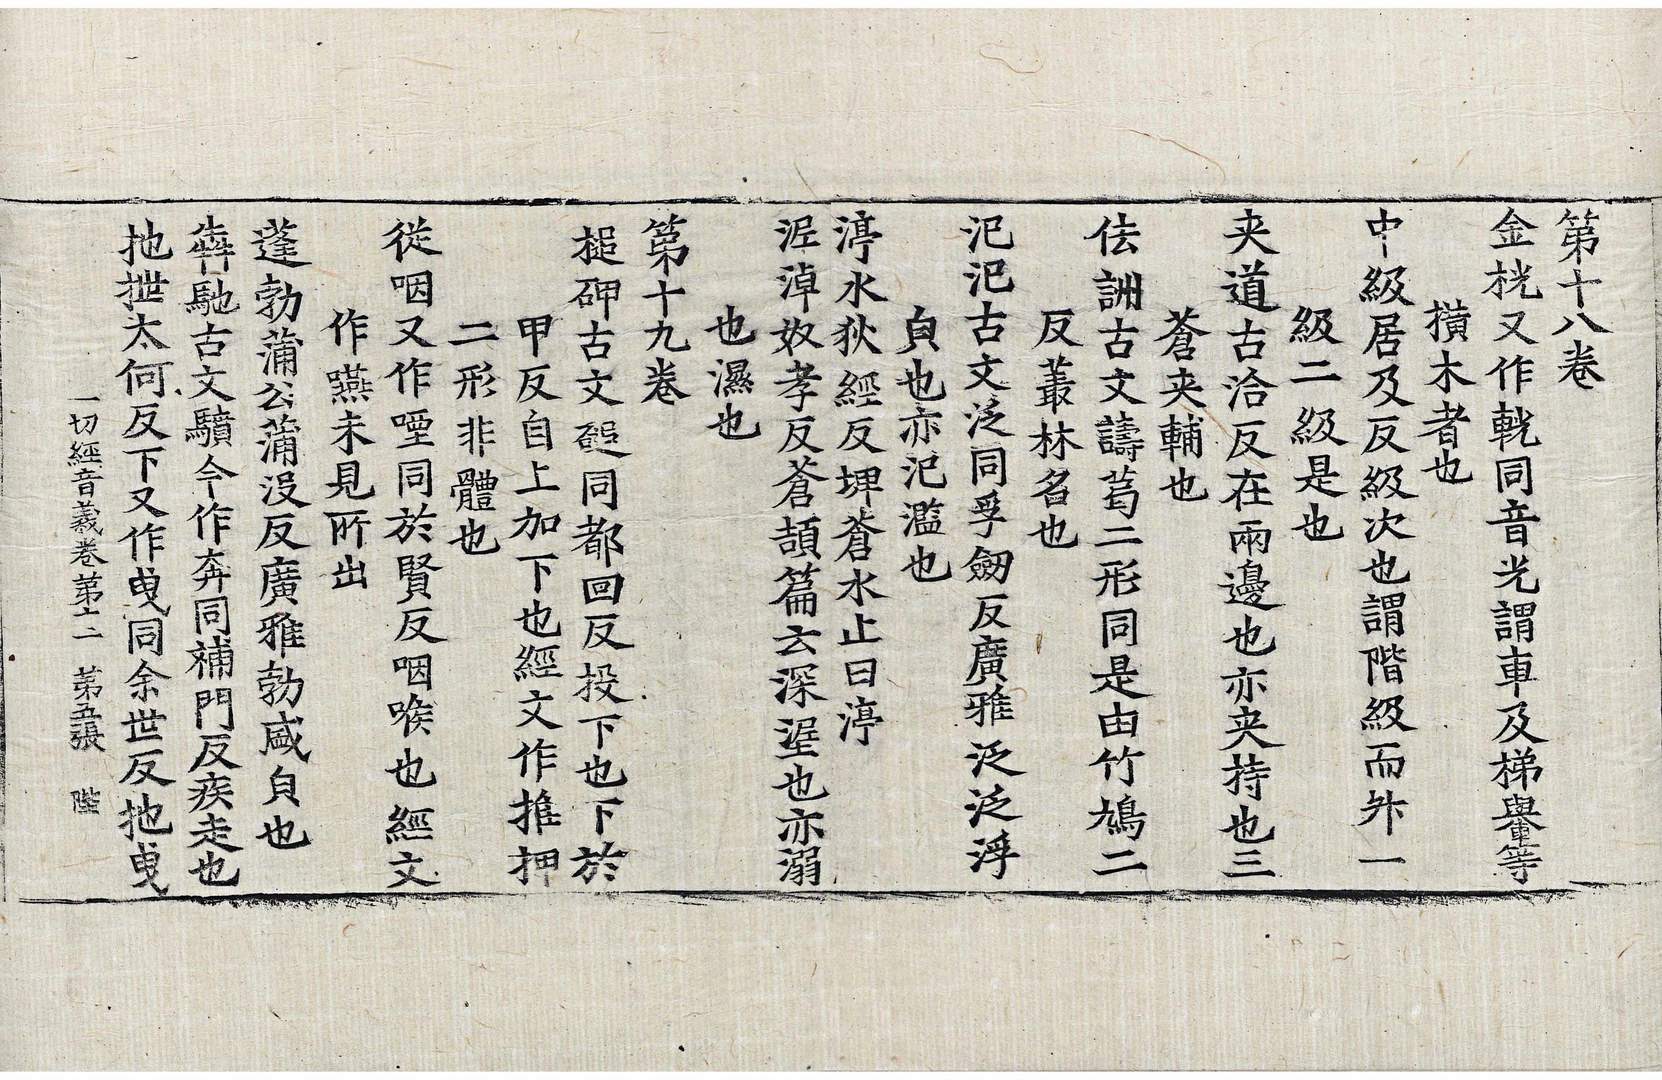 第十八卷
金桄又作軦同音光謂車及梯轝等
橫木者也
中級居及反級次也謂階級而外一
級二級是也
夾道古洽反在兩邊也亦夾持也三
蒼夾輔也
佉詶古文譸䓤二形同是由竹鳩二
反叢林名也
氾氾古文泛同孚劒反廣雅泛泛浮
皃也亦氾濫也
渟水狄經反埤蒼水止曰渟
泥淖奴孝反蒼頡篇云深埿也亦溺
也濕也
第十九卷
搥砷古文磓同都回反投下也下於
甲反自上加下也經文作推押
二形非體也
從咽又作㖶同於賢反咽喉也經文
作嚥未見所出
蓬勃蒲公蒲沒反廣雅勃盛皃也
犇馳古文驞今作奔同補門反疾走也
拖抴太何反下又作曳同余世反拖曳
一切經音義卷第十二 第五張 階